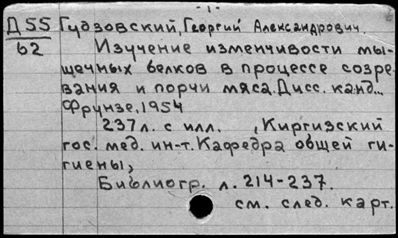 -1-
Д 55 Гудзовский, Георгий Александрович
62 Изучение изменчивости мы-
щечных белков в процессе созре-
вания и порчи мяса. Дисс. канд...
Фрунзе, 1954
237 л. с илл. , Киргизский
гос. мед. ин-т. Кафедра общей ги-
гиены,
Библиогр. л. 214-237.
см. след. карт.